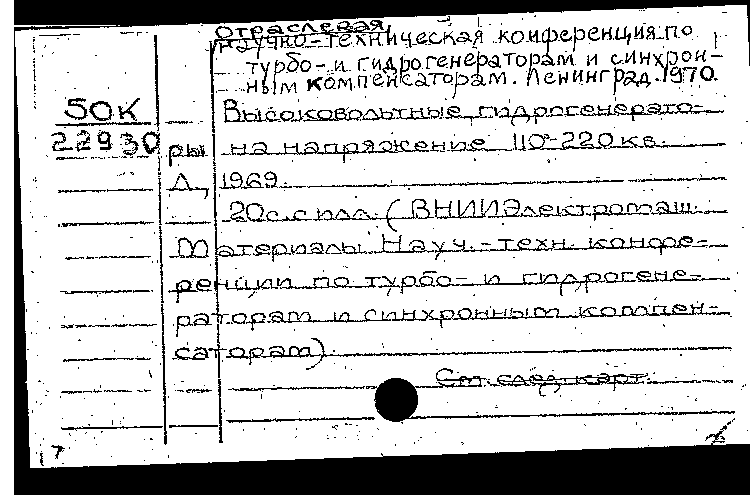 Отраслевая
научно-техническая конференция по
турбо- и гидрогенераторам и синхрон-
ным компенсаторам. Ленинград. 1970.
50К
22930
Высоковольтные гидрогенерато-
ры на напряжение 110-220 кв.
Л., 1969.
20 с. с илл. (ВНИИЭлектромаш.
Материалы Науч.-техн. конфе-
ренции по турбо- и гидрогене-
раторам и синхронным компен-
саторам).
См. след. карт.
7